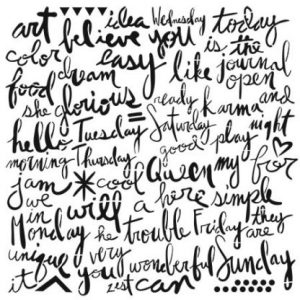 art idea Wednesday today
color believe you is the
food dream easy like journal
she glorious ready karma open
hello Tuesday Saturday and
morning Thursday good play night
jam cool Queen my for
we will a here simple
in Monday he trouble Friday they
unique very wonderful are
it you zest can Sunday